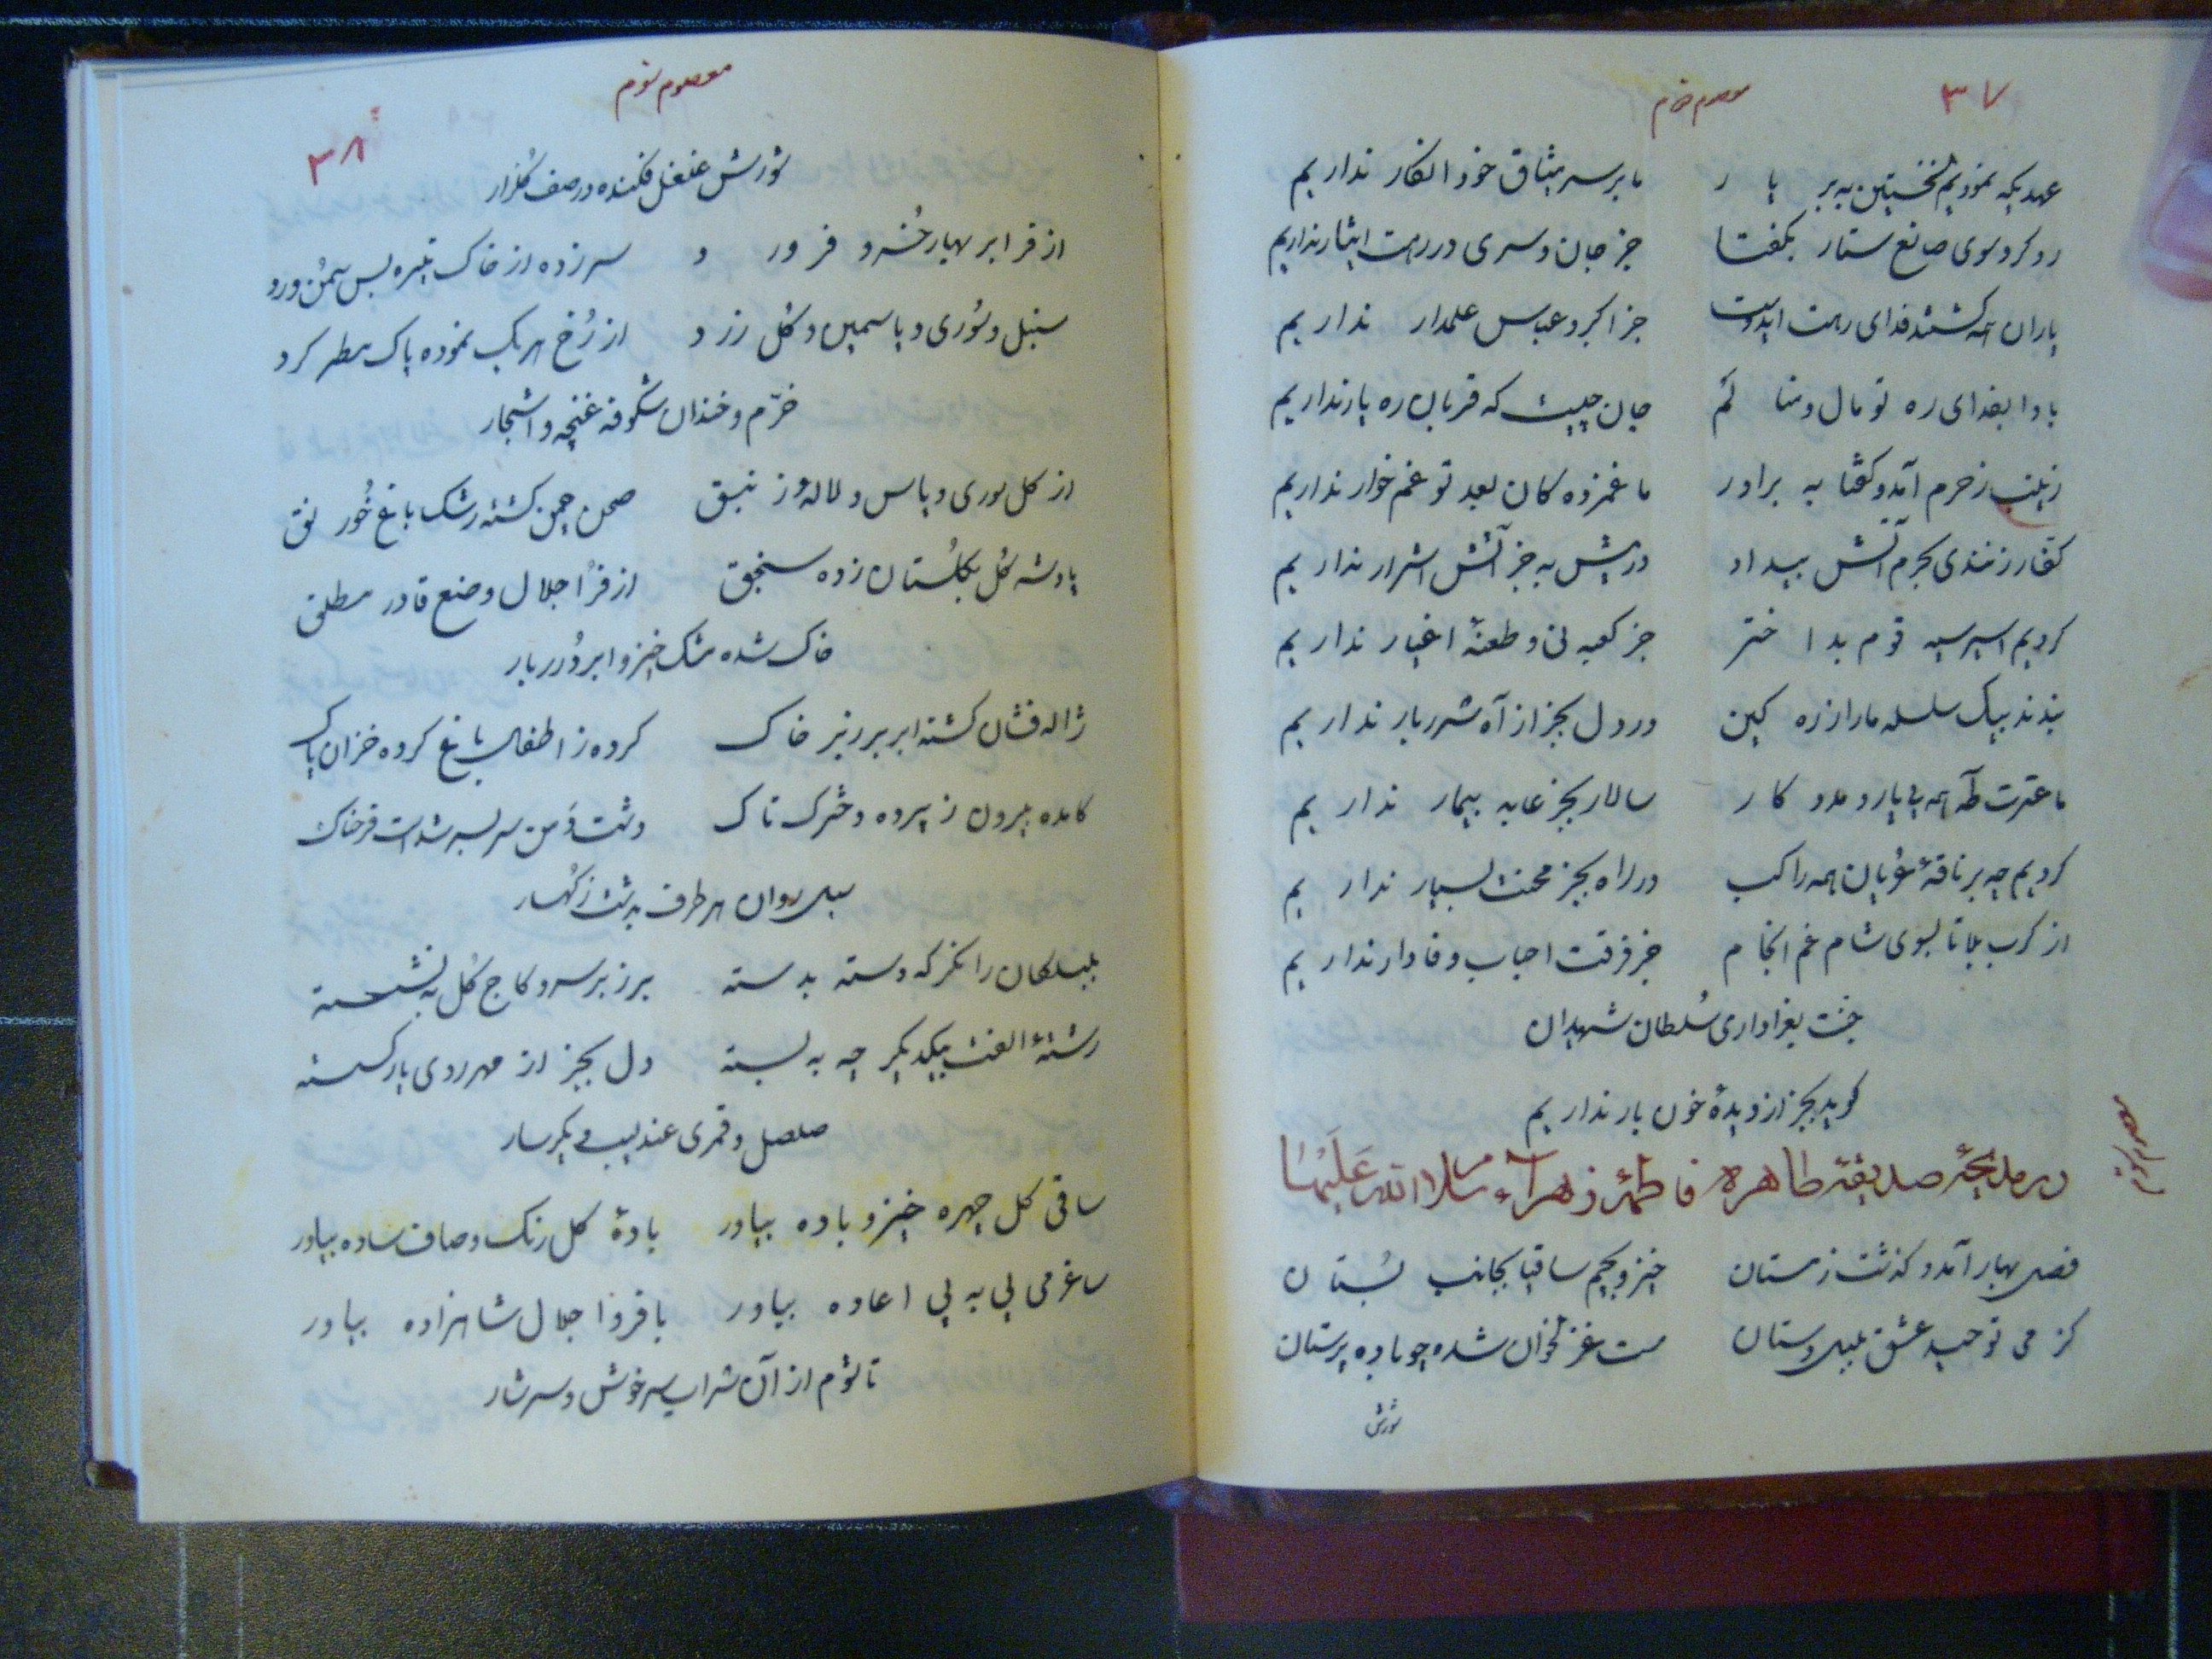 ۳۷
معصوم سوم
عهدیکه نمودیم نخستین به بر یار ما بر سر میثاق خود انکار نداریم
رو کرد سوی صانع ستار بگفتا جز جان و سری در رهت ایثار نداریم
یاران همه کشتند فدای رهت ایدوست جز اکبر و عباس علمدار نداریم
بادا بفدای ره تو مال و منالم جان چیست که قربان ره یار نداریم
زینب ز حرم آمد و گفتا به برادر ما غمزده کان بعد تو غم خوار نداریم
کفار زنندی بحرم آتش بیداد در پیش به جز آتش اشرار نداریم
کردیم اسیر سپه قوم بد اختر جز کعبه نی و طعنهٔ اغیار نداریم
بندند بیک سلسله ما را ز ره کین در دل بجز از آه شرر بار نداریم
ما عترت طه همه بی یار و مدد کار سالار بجز عابد بیمار نداریم
کردیم چه بر ناقهٔ عریان همه راکب در راه بجز محنت بسیار نداریم
از کرب بلا تا بسوی شام غم انجام جز فرقت احباب وفادار نداریم
جنت بعزاداری سلطان شهیدان
گوید بجز از دیدهٔ خون بار نداریم
معصوم سوم
در مدیحهٔ صدیقهٔ طاهره فاطمهٔ زهرآء سلام الله علیها
فصل بهار آمد و گذشت زمستان خیز و بچم ساقیا بجانب بُستان
کز می توحید عشق بلبل دستان مست غزلخوان شده چو باده پرستان
شورش
معصوم سوم
۳۸
شورش غلغل فکنده در صف گلزار
از فر ابر بهار خسرو فرورد سر زده از خاک تیره بس سمن و ورد
سنبل و سوری و یاسمین و گل زرد از رُخ هریک نموده پاک مطر گرد
خرّم و خندان شکوفه غنچه و اشجار
از گل سوری و یاس و لاله و زنبق صحن چمن کشته رشک باغ خُورنق
پادشه گل بگلستان زده سنجق از فرّ اجلال و صنع قادر مطلق
خاک شده مشک خیز و ابر دُرر بار
ژاله فشان کشته ابر بر زبر خاک کرده ز اطفال باغ گرده خزان پاک
کامده بیرون ز پرده دخترک تاک دشت و دَمن سر بسر شداست فرحناک
سیل روان هر طرف بدشت ز کُهسار
بلبلکان را نگر که دسته بدسته بر زبر سرو کاج گل به نشسته
رشتهٔ الفت بیکدیگر چه به بسته دل بجز از مهر روی یار گسسته
صلصل و قمری عندلیب
ساقی گل چهره خیز و باده بیاور بادهٔ گل رنگ و صاف ساده بیاور
ساغر می پی به پی اعاده بیاور با فر و اجلال شاهزاده بیاور
تا شوم از آن شراب سرخوش و سرشار